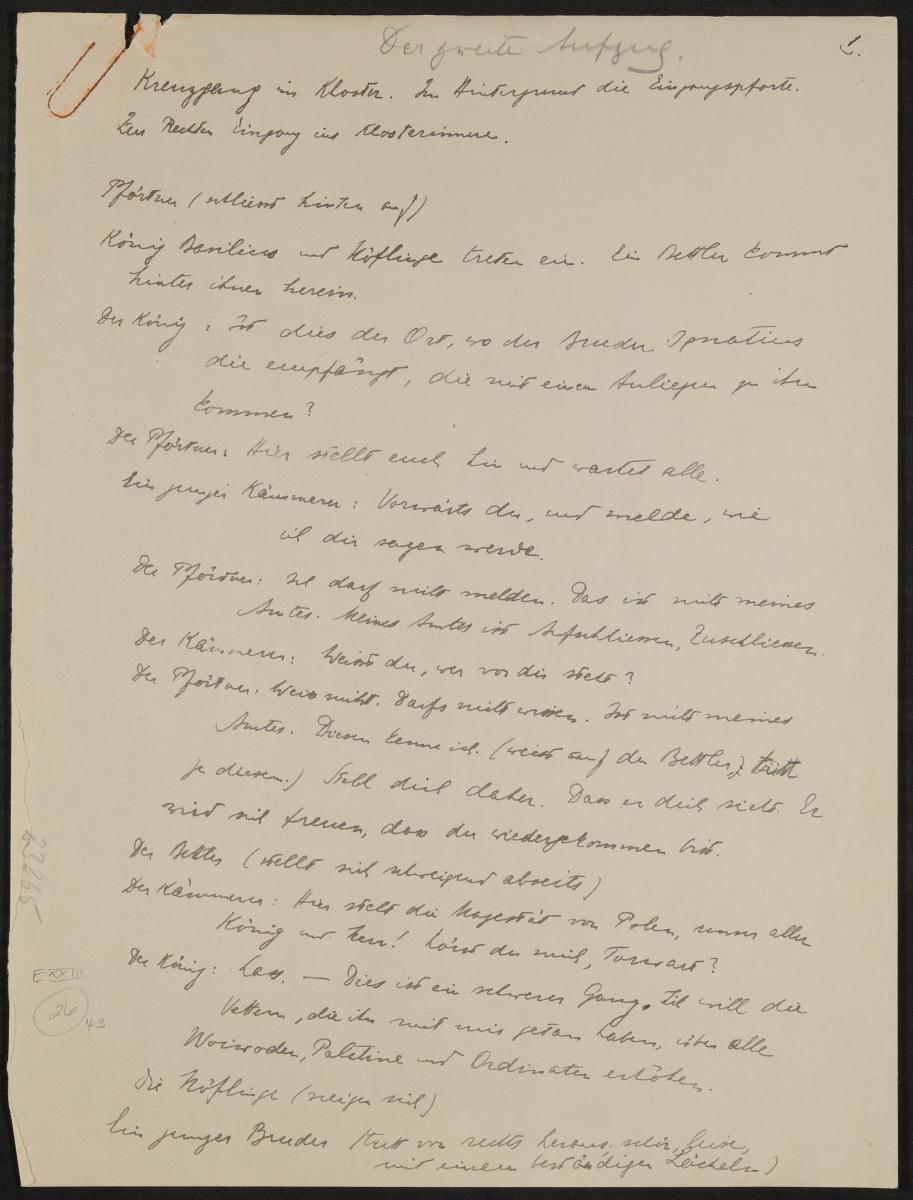 Der zweite Aufzug.
1.
Kreuzgang im Kloster. Im Hintergrund die Eingangspforte.
Zur Rechten Eingang ins Klosterinnere.
Pförtner (schliesst hinten auf)
König Basilius und Höflinge treten ein. Ein Bettler kommt
hinter ihnen herein.
Der König: Ist dies der Ort, wo der Bruder Ignatius
die empfängt, die mit einem Anliegen zu ihm
kommen?
Der Pförtner: Hier stellt euch hin und wartet alle.
Ein junger Kämmerer: Vorwärts du, und melde, wie
ich dir sagen werde.
Der Pförtner: Ich darf nicht melden. Das ist nicht meines
Amtes. Meines Amtes ist Aufschliessen, Zuschliessen.
Der Kämmerer: Weisst du, wer vor dir steht?
Der Pförtner: Weiss nicht. Darfs nicht wissen. Ist nicht meines
Amtes. Diesen kenne ich. (weist auf den Bettler, tritt
zu diesem.) Stell dich daher. Dass er dich sieht. Er
wird sich freuen, dass du wiedergekommen bist.
Der Bettler (stellt sich schweigend abseits)
Der Kämmerer: Hier steht die Majestät von Polen, unser aller
König und Herr! hörst du mich, Torwart?
Der König: Lass. — Dies ist ein schwerer Gang. Ich will die
Vettern, die ihn mit mir getan haben, über alle
Woiwoden, Palatine und Ordinaten erhöhen.
Die Höflinge (neigen sich)
Ein junger Bruder (tritt von rechts heraus, schön, leise,
mit einem beständigen Lächeln)
23265
E XXIII
26
43